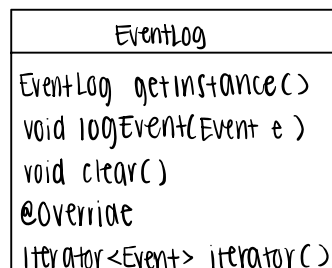 EventLog
EventLog getInstance()
void logEvent(Event e)
void clear()
@Override
Iterator<Event> iterator()